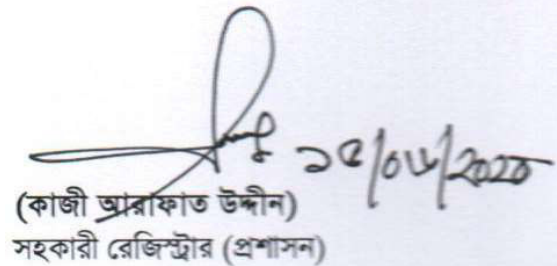 ১৫/০৬/২০২৫
(কাজী আরাফাত উদ্দীন)
সহকারী রেজিস্ট্রার (প্রশাসন)